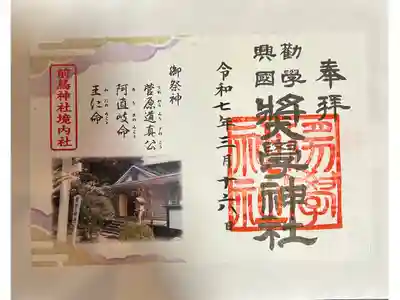 奉拝
勸學
興國
奨學神社
令和七年三月十六日
御祭神
菅原道真公
阿直岐命
王仁命
前鳥神社境内社